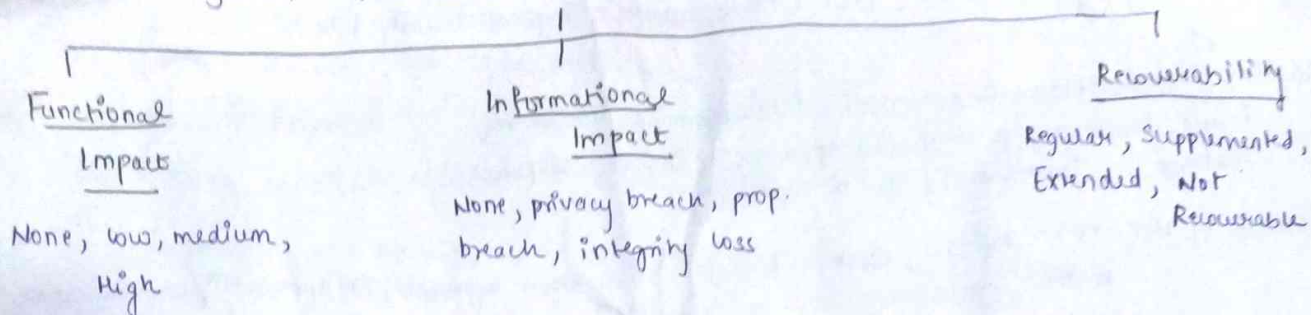 Functional
Impact
None, low, medium,
High
Informational
Impact
None, privacy breach, prop.
breach, integrity loss
Recoverability
Regular, Supplemented,
Extended, Not
Recoverable